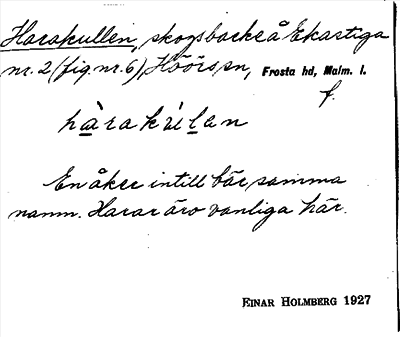 Harakullen, skogsbacke å Ekastiga
nr. 2 (fig. nr. 6), Höörs sn, Frosta hd, Malm. l.
f.
hàrakúlan
En åker intill bär samma
namn. Harar äro vanliga här.
EINAR HOLMBERG 1927